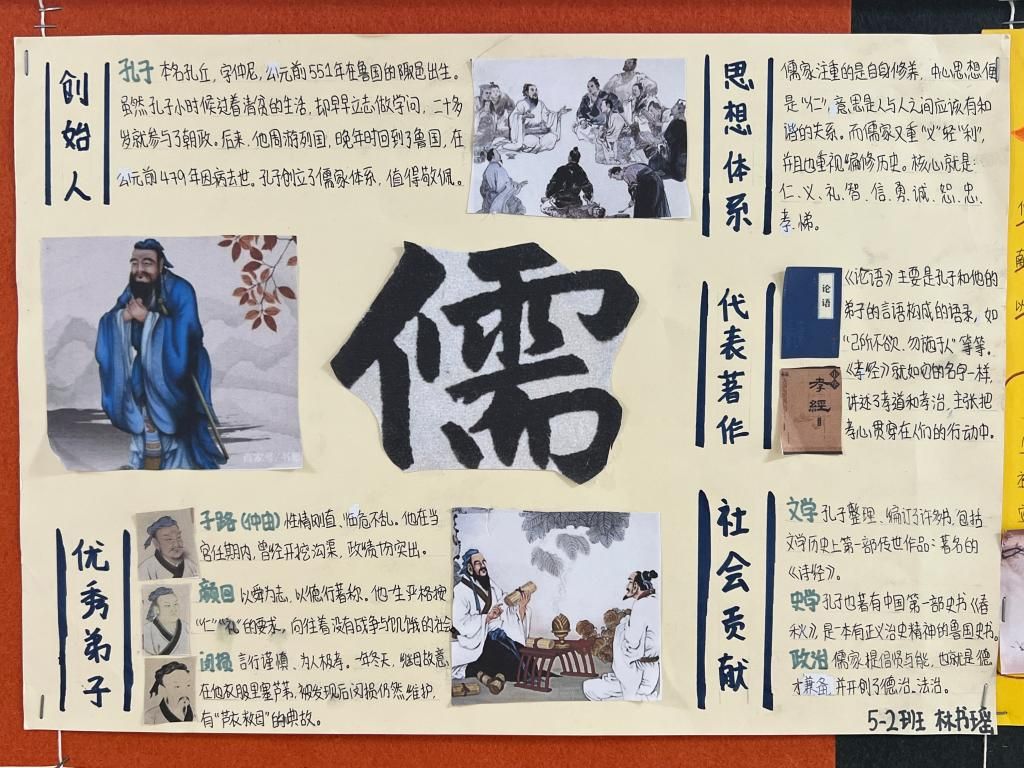 创始人
孔子 本名孔丘，字仲尼，公元前551年在鲁国的陬邑出生。
虽然孔子小时候过着清贫的生活，却早早立志做学问，二十多
岁就参与了朝政。后来，他周游列国，晚年时回到了鲁国，在
公元前479年因病去世。孔子创立了儒家体系，值得敬佩。
思想体系
儒家注重的是自身修养，中心思想便
是“仁”，意思是人与人之间应该有和
谐的关系。而儒家又重“义”轻“利”，
并且也重视编修历史。核心就是：
仁、义、礼、智、信、勇、诚、恕、忠、
孝、悌。
儒
代表著作
论语
孝經
《论语》主要是孔子和他的
弟子的言语构成的语录，如
“己所不欲、勿施于人”等等。
《孝经》就如它的名字一样，
讲述了孝道和孝治，主张把
孝心贯穿在人们的行动中。
优秀弟子
子路（仲由）性情刚直，临危不乱。他在当
官任期内，曾经开挖沟渠，政绩切突出。
颜回 以舜为志，以德行著称。他一生严格按
“仁”“礼”的要求，向往着没有战争与饥饿的社会
闵损 言行谨慎，为人极孝。一年冬天，继母故意
在他衣服里塞芦苇，被发现后闵损仍然维护，
有“芦衣救母”的典故。
社会贡献
文学 孔子整理、编订了许多书，包括
文学历史上第一部传世作品：著名的
《诗经》。
史学 孔子也著有中国第一部史书《春
秋》，是一本有正义治史精神的鲁国史书。
政治 儒家提倡贤与能，也就是德
才兼备，并开创了德治、法治。
5-2班 林书瑶